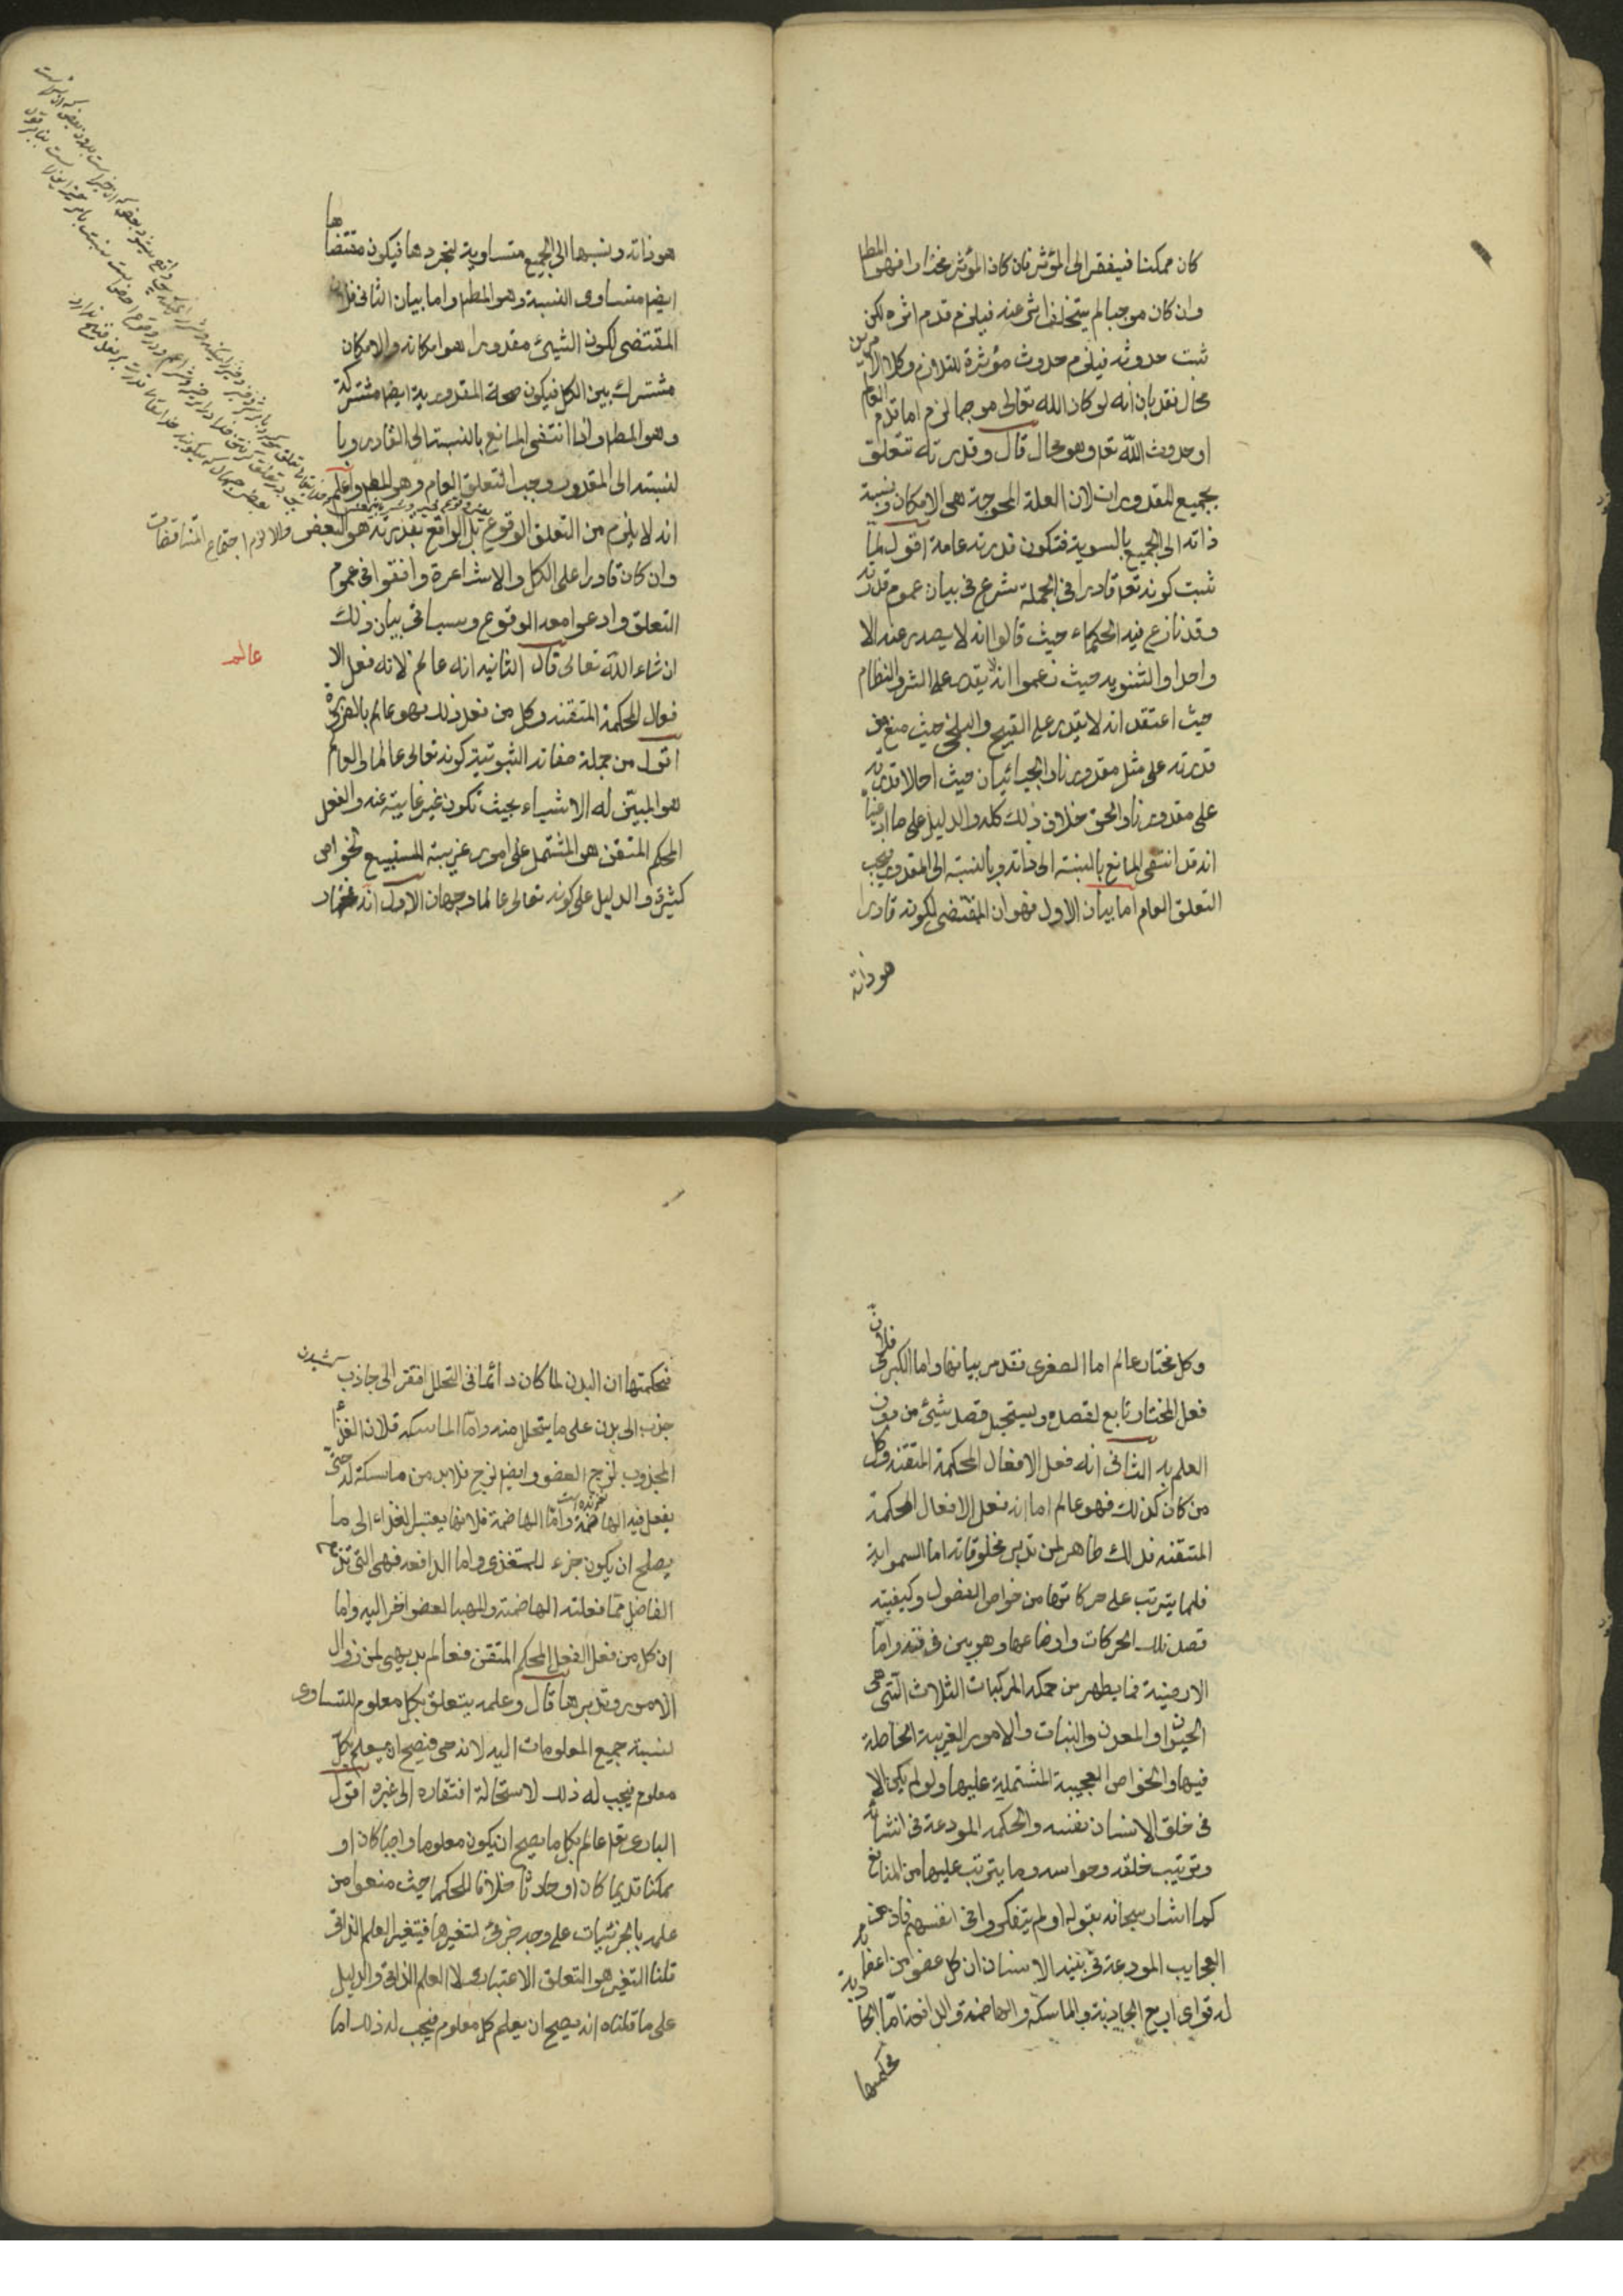 كان ممكنا فيفتقر الى المؤثر فان كان المؤثر مختارا فهو المط
وان كان موجبا لم يتخلف اثره عنه فيلزم قدم اثره لكن
ثبت حدوثه فيلزم حدوث مؤثره للتلازم وكلا الامرين
محال فقد بان انه لو كان الله تعالى موجبا لزم اما قدم العالم
او حدوث الله تعه وهو محال قال وقدرته تتعلق
بجميع المقدورات لان العلة المحوجة هى الامكان ونسبة
ذاته الى الجميع بالسوية فتكون قدرته عامة اقول لما
ثبت كونه تعه قادرا فى الجملة شرع فى بيان عموم قدرته
وقد نازع فيه الحكماء حيث قالوا انه لا يصدر عنه الا
واحد والثنويه حيث زعموا انه لا يقدر على الشر والنظام
حيث اعتقد انه لا يقدر على القبيح والبلخى حيث منع من
قدرته على مثل مقدورنا والجبائيان حيث احالا قدرته
على مقدورنا والحق خلاف ذلك كله والدليل على ما ادعينا
انه قد انتفى المانع بالنسبة الى ذاته وبالنسبة الى المقدور فيجب
التعلق العام اما بيان الاول فهو ان المقتضى لكونه قادرا
هو ذاته
هو ذاته ونسبها الى الجميع متساوية لتجردها فيكون مقتضاها
ايضا متساوى النسبة وهو المط واما بيان الثانى فلان
المقتضى لكون الشيئ مقدورا هو امكانه والامكان
مشترك بين الكل فيكون صحة المقدورية ايضا مشتركة
وهو المط واذا انتفى المانع بالنسبة الى القادر وبا
لنسبته الى المقدور وجب التعلق العام وهو المط واعلم
انه لا يلزم من التعلق الوقوع بل الواقع بقدرته هو البعض والا لزم اجتماع المتناقضات
وان كان قادرا على الكل والاشاعرة وافقوا فى عموم
التعلق وادعوا معه الوقوع وسيأتى بيان ذلك
ان شاء الله تعالى قال الثانيه انه عالم لانه فعل الا
عالم
فعال المحكمة المتقنه وكل من فعل ذلك فهو عالم بالضرورة
اقول من جملة صفاته الثبوتية كونه تعالى عالما والعالم
هو المبين له الاشياء بحيث تكون غير غايبة عنه والفعل
المحكم المتقن هو المشتمل على امور غريبة للستبيع لخواص
كثيرة والدليل على كونه تعالى عالما وجهان الاول انه مختار
وكل مختار عالم اما الصغرى فقد مر بيانها واما الكبرى فلان
فعل المختار تابع لقصده ويستحيل قصد شيئ من دون
العلم به الثانى انه فعل الافعال المحكمة المتقنه وكل
من كان كذلك فهو عالم اما انه فعل الافعال المحكمة
المتقنه فذلك ظاهر لمن تدبر مخلوقاته اما السمواية
فلما يترتب على حركاتها من خواص الفصول وكيفيته
قصد تلك الحركات واوضاعها وهو بين فى فنه واما
الارضية فما يظهر من حكمه المركبات الثلاث التى هى
الحيوان والمعدن والنبات والامور الغريبة الحاصلة
فيها والخواص العجيبة المشتملية عليها ولو لم يكن الا
فى خلق الانسان نفسه والحكمه المودعة فى انشائه
وترتيب خلقه وحواسه وما يترتب عليها من المنافع
كما اشار سبحانه بقوله اولم يتفكروا فى انفسهم فان من
العجايب المودعة فى بنيه الانسان ان كل عضو من اعضائه
له قواى اربع الجاذبة والماسكه والهاضمة والدافعة اما الجاذبة
فحكمتها
فحكمتها ان البدن لما كان دائما فى التحلل افتقر الى جاذب
جذب الى بدن على ما يتحلل منه واما الماسكه فلان الغذاء
المجذوب لزج العضو وايضا لزج فلابد من ماسكة له حتى
يفعل فيه الهاضمة واما الهاضمة فلانها يغتبر الغذاء الى ما
يصلح ان يكون جزء للمتغذى واما الدافعه فهى التى تدفع
الفاضل مما فعلته الهاضمة والمهيا لعضو اخر اليه واما
ان كل من فعل الفعل المحكم المتقن فعالم بديهى لمن زوال
الامور وتدبرها قال وعلمه يتعلق بكل معلوم للتساوى
لنسبة جميع المعلومات اليه لانه حى فيصح ان يعلم بكل
معلوم فيجب له ذلك لاستحالة افتقاره الى غيره اقول
البارى تعه عالم بكل ما يصح ان يكون معلوما واجبا كان او
ممكنا قديما كان او حادثا خلافا للحكما حيث منعوا من
علمه بالجزئيات على وجه جزئى لتغيرها فيتغير العلم الذاتى
قلنا التغير هو التعلق الاعتبارى لا العلم الذاتى والدليل
على ما قلناه انه يصح ان يعلم كل معلوم فيجب له ذلك اما